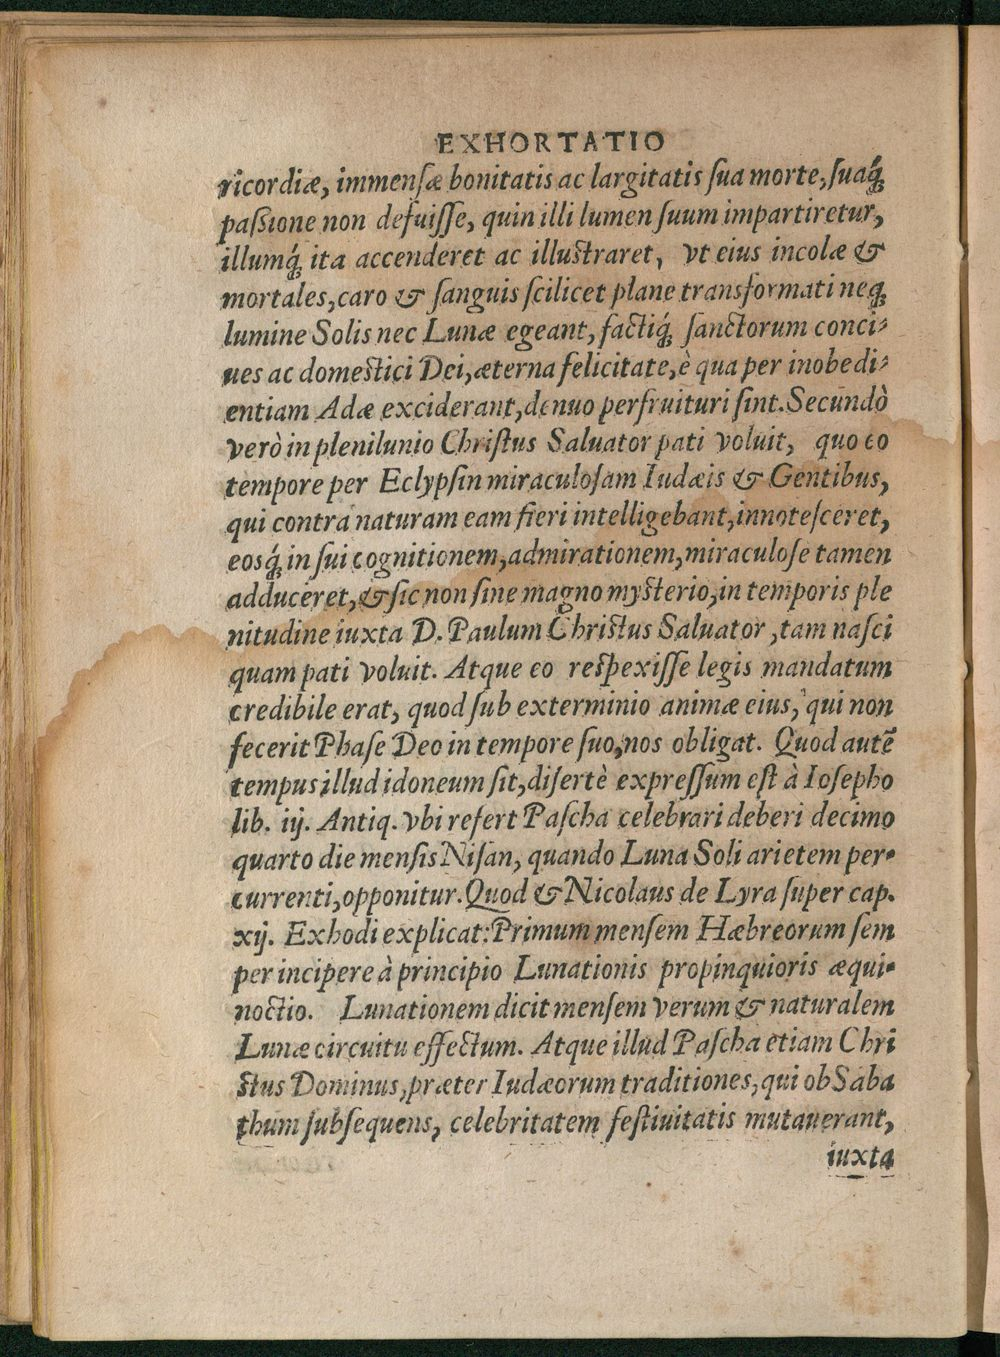 EXHORTATIO
ricordiæ, immensæ bonitatis ac largitatis sua morte, suaq́;
paßione non defuisse, quin illi lumen suum impartiretur,
illumq́; ita accenderet ac illustraret, vt eius incolæ &
mortales, caro & sanguis scilicet plane transformati neq;
lumine Solis nec Lunæ egeant, factiq́; sanctorum conci-
ues ac domestici Dei, æterna felicitate, è qua per inobedi-
entiam Adæ exciderant, denuo perfruituri sint. Secundò
verò in plenilunio Christus Saluator pati voluit, quo eo
tempore per Eclypsin miraculosam Iudæis & Gentibus,
qui contra naturam eam fieri intelligebant, innotesceret,
eosq́; in sui cognitionem, admirationem, miraculose tamen
adduceret, & sic non sine magno mysterio, in temporis ple
nitudine iuxta D. Paulum Christus Saluator, tam nasci
quam pati voluit. Atque eo respexisse legis mandatum
credibile erat, quod sub exterminio animæ eius, qui non
fecerit Phase Deo in tempore suo, nos obligat. Quod autē
tempus illud idoneum sit, disertè expressum est à Iosepho
lib. iij. Antiq. vbi refert Pascha celebrari deberi decimo
quarto die mensis Nisan, quando Luna Soli arietem per-
currenti, opponitur. Quod & Nicolaus de Lyra super cap.
xij. Exhodi explicat: Primum mensem Hæbreorum sem
per incipere à principio Lunationis propinquioris æqui-
noctio. Lunationem dicit mensem verum & naturalem
Lunæ circuitu effectum. Atque illud Pascha etiam Chri
stus Dominus, præter Iudæorum traditiones, qui ob Saba
thum subsequens, celebritatem festiuitatis mutauerant,
iuxta